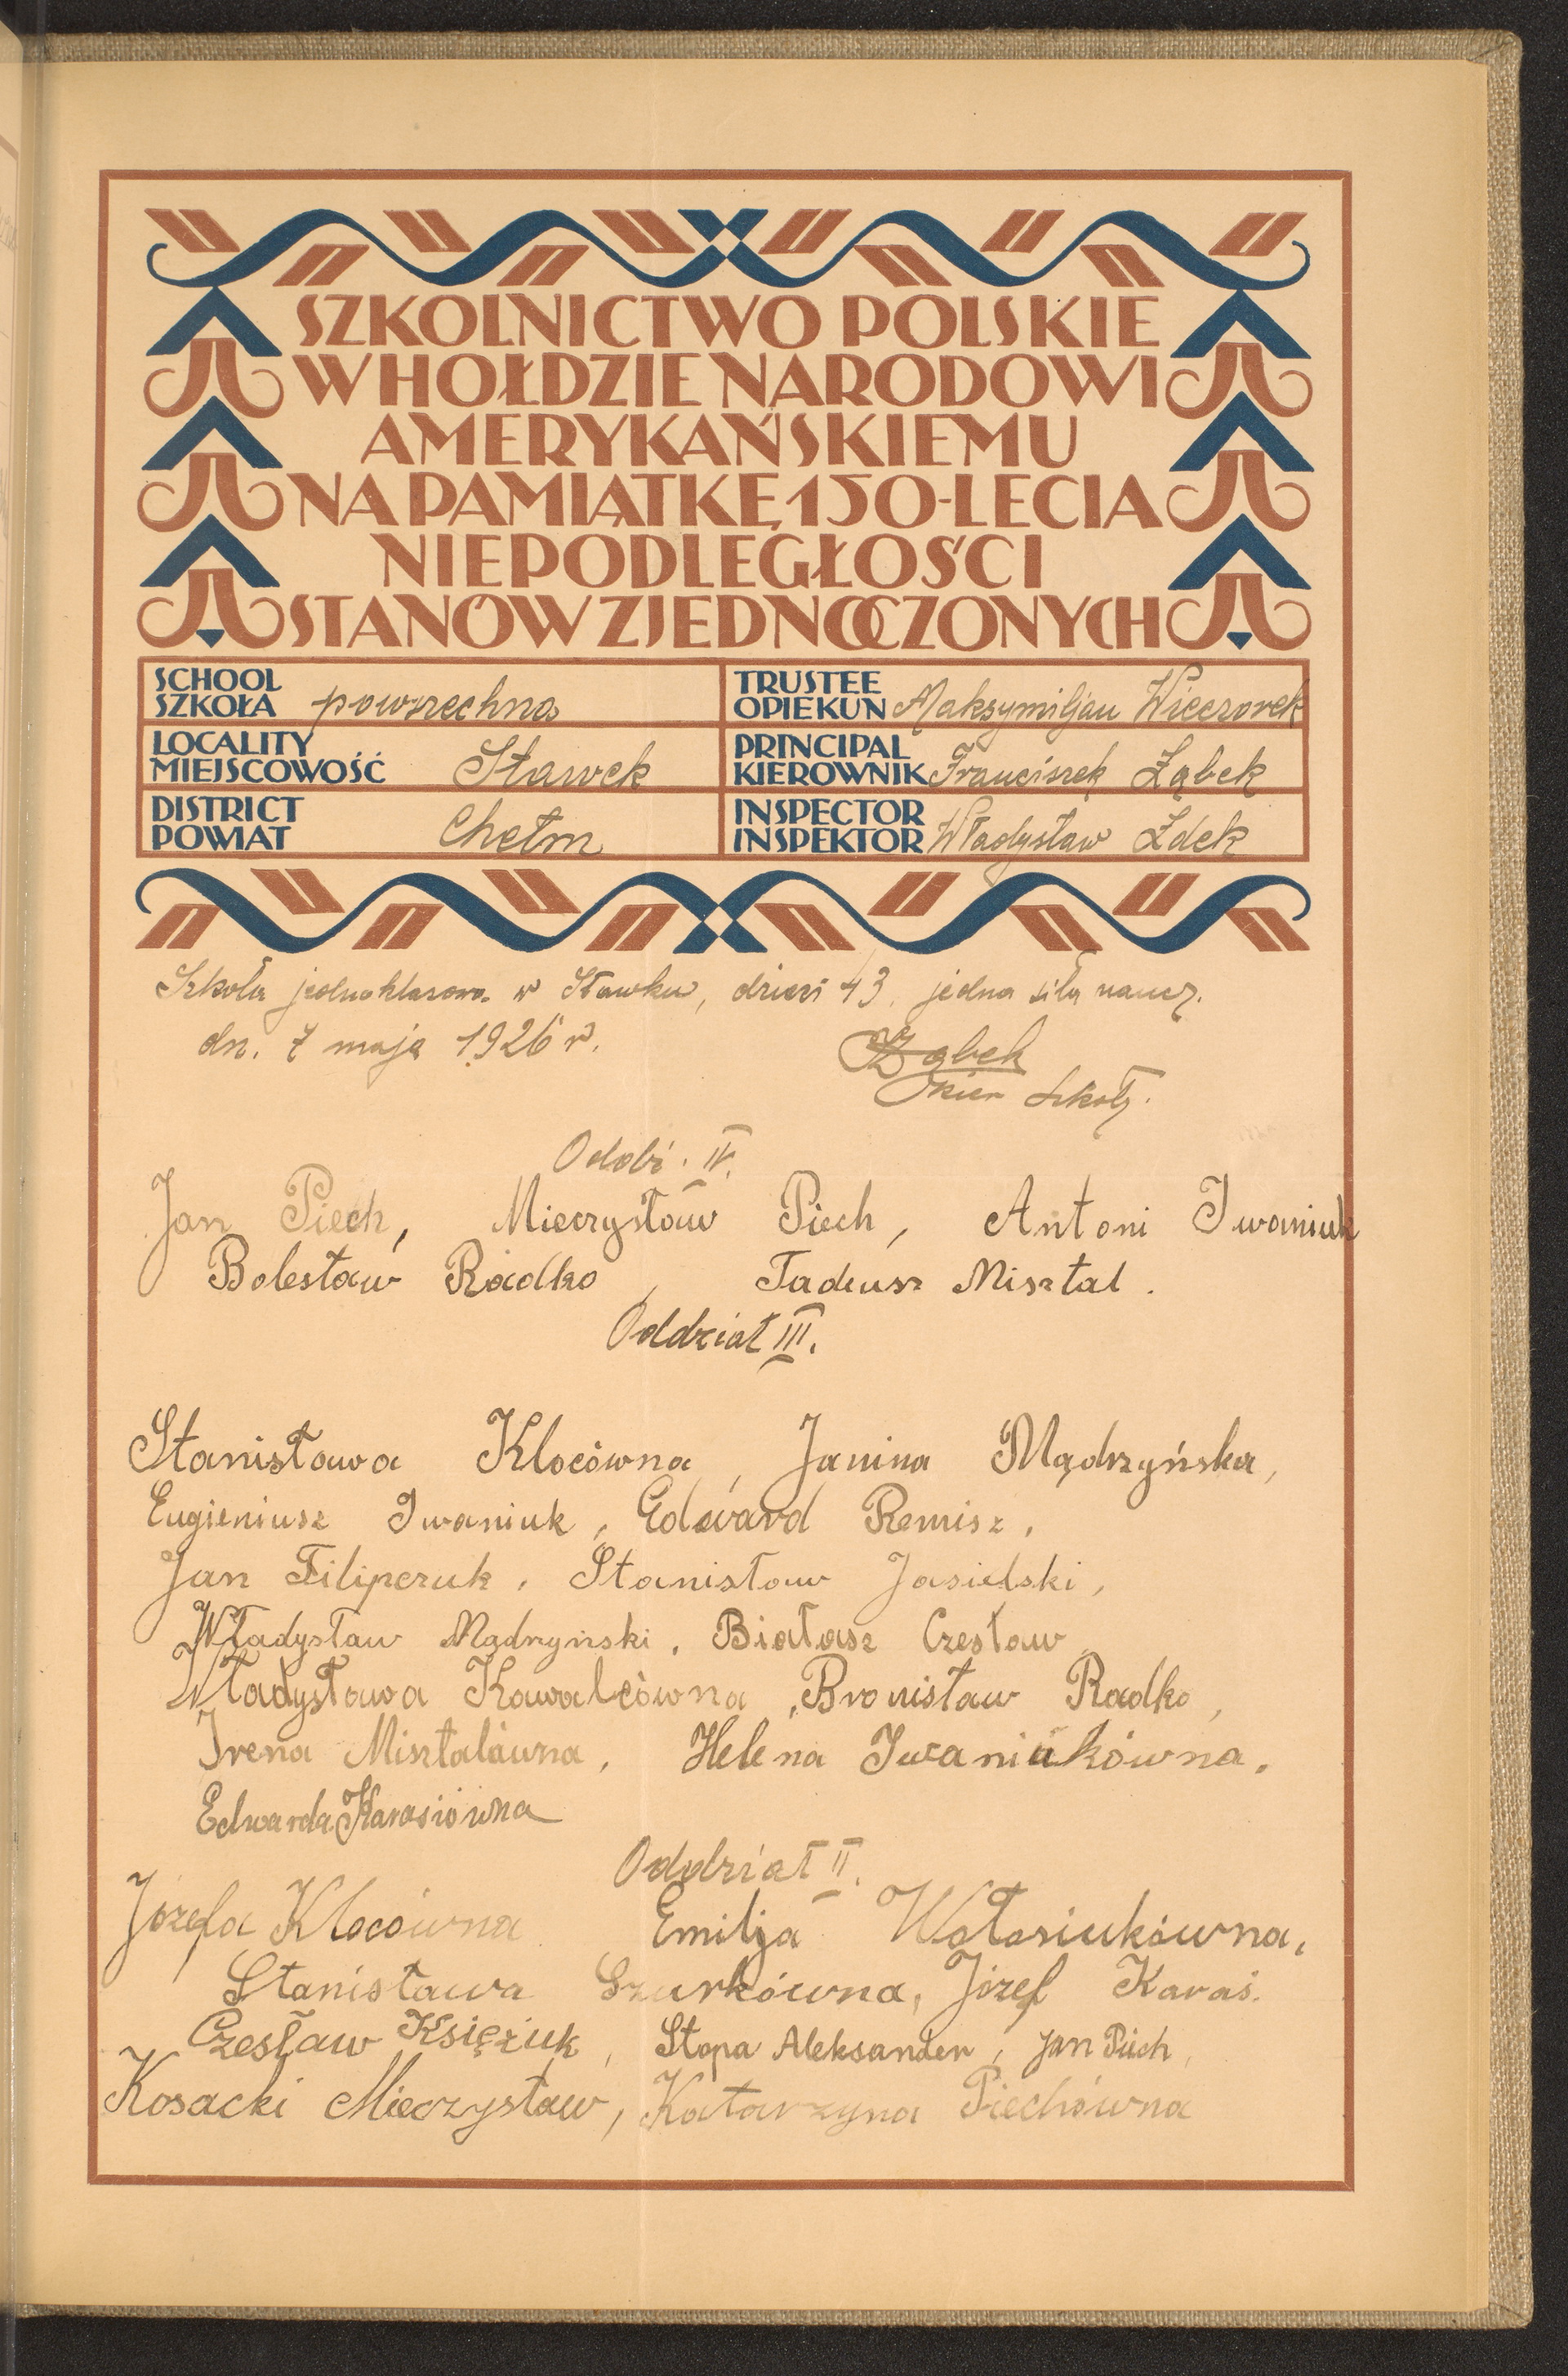 SZKOLNICTWO POLSKIE
W HOŁDZIE NARODOWI
AMERYKAŃSKIEMU
NA PAMIĄTKĘ 150-LECIA
NIEPODLEGŁOŚCI
STANÓW ZJEDNOCZONYCH
SCHOOL
SZKOŁA powszechna
TRUSTEE
OPIEKUN Maksymiljan Wieczorek
LOCALITY
MIEJSCOWOŚĆ Stawek
PRINCIPAL
KIEROWNIK Franciszek Ząbek
DISTRICT
POWIAT Chełm
INSPECTOR
INSPEKTOR Władysław Zdek
Szkoła jednoklasowa w Stawku, dzieci 43, jedna siła naucz.
dn. 7 maja 1926 r.
Ząbek
kier szkoły.
Oddz. IV.
Jan Piech, Mieczysław Piech, Antoni Iwaniuk
Bolesław Radko, Tadeusz Misztal.
Oddział III.
Stanisława Klocówna, Janina Mądrzyńska,
Eugieniusz Iwaniuk, Edward Remisz,
Jan Filipczuk, Stanisław Jasielski,
Władysław Mądrzyński, Białasz Czesław
Władysława Kowalcówna, Bronisław Radko,
Irena Misztalówna, Helena Iwaniukówna.
Edwarda Karasiówna
Oddział II.
Józefa Klocówna Emilja Wołosiukówna,
Stanisława Szurkówna, Józef Karaś.
Czesław Księżuk, Stopa Aleksander, Jan Piech,
Kosacki Mieczysław, Katarzyna Piechówna